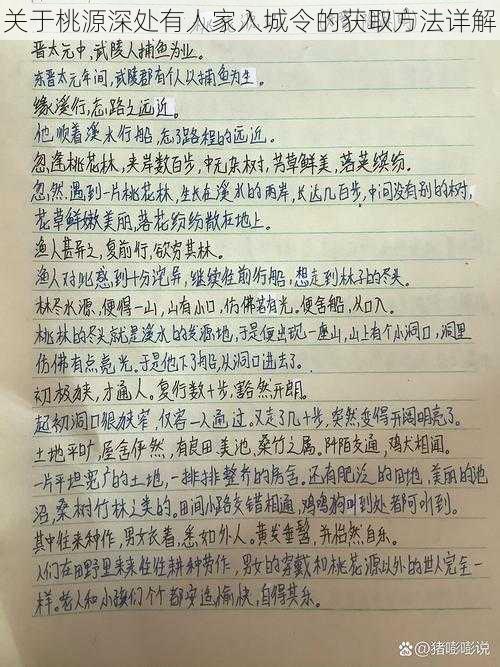 关于桃源深处有人家入城令的获取方法详解
晋太元中,武陵人捕鱼为业。
东晋太元年间,武陵郡有个人以捕鱼为生。
缘溪行,忘路之远近。
他顺着溪水行船,忘了路程的远近。
忽逢桃花林,夹岸数百步,中无杂树,芳草鲜美,落英缤纷。
忽然遇到一片桃花林,生长在溪水的两岸,长达几百步,中间没有别的树,
花草鲜嫩美丽,落花纷纷散在地上。
渔人甚异之,复前行,欲穷其林。
渔人对此感到十分诧异,继续往前行船,想走到林子的尽头。
林尽水源,便得一山,山有小口,仿佛若有光。便舍船,从口入。
桃林的尽头就是溪水的发源地,于是便出现一座山,山上有个小洞口,洞里
仿佛有点亮光。于是他下了船,从洞口进去了。
初极狭,才通人。复行数十步,豁然开朗。
起初洞口很狭窄,仅容一人通过。又走了几十步,突然变得开阔明亮了。
土地平旷,屋舍俨然,有良田美池,桑竹之属。阡陌交通,鸡犬相闻。
一片平坦宽广的土地,一排排整齐的房舍。还有肥沃的田地,美丽的池
沼,桑树竹林之类的。田间小路交错相通,鸡鸣狗叫到处都可听到。
其中往来种作,男女衣着,悉如外人。黄发垂髫,并怡然自乐。
人们在田野里来来往往耕种劳作,男女的穿戴和桃花源以外的世人完全一
样。老人和小孩们个个都安适愉快,自得其乐。
@猪嘭嘭说